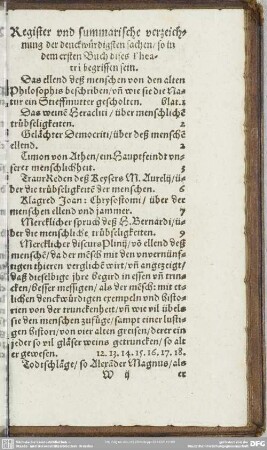 Register vnd summarische verzeich-
nung der denckwürdigsten sachen/ so in
dem ersten Buch dises Thea-
tri begriffen sein.
Das ellend deß menschen von den alten
Philosophis beschriben/ vn̄ wie sie die Na-
tur ein Steffmutter gescholten. blat. 1
Das weinē Heracliti/ über menschliche
trübseligkeiten. 2
Gelächter Democriti/ über deß menschē
ellend. 2
Timon von Athen/ ein Hauptfeindt vn-
serer menschlichheit. 3
TraurReden deß Keysers M. Aurelij/ ü-
ber die trübseligkeitē der menschen. 6
Klagred Joan: Chrysostomi/ über der
menschen ellend vnd jammer. 7
Mercklicher spruch deß H. Bernardi/ ü-
ber die menschliche trübseligkeiten. 9
Mercklicher discurs Plinij/ vō ellend deß
menschē/ da der mēsch mit den vnvernünf-
tigen thieren verglichē wirt/ vn̄ angezeigt/
daß dieselbige jhre begird in essen vn̄ trin-
cken/ besser messigen/ als der mēsch: mit et-
lichen denckwürdigen exempeln vnd histo-
rien von der trunckenheit/ vn̄ wie vil übels
sie den menschen zufüge/ sampt einer lusti-
gen histori/ von vier alten greisen/ derer ein
jeder so vil gläser weins getruncken/ so alt
er gewesen. 12. 13. 14. 15. 16. 17. 18.
Todtschläge/ so Alexāder Magnus/ als
W ij er